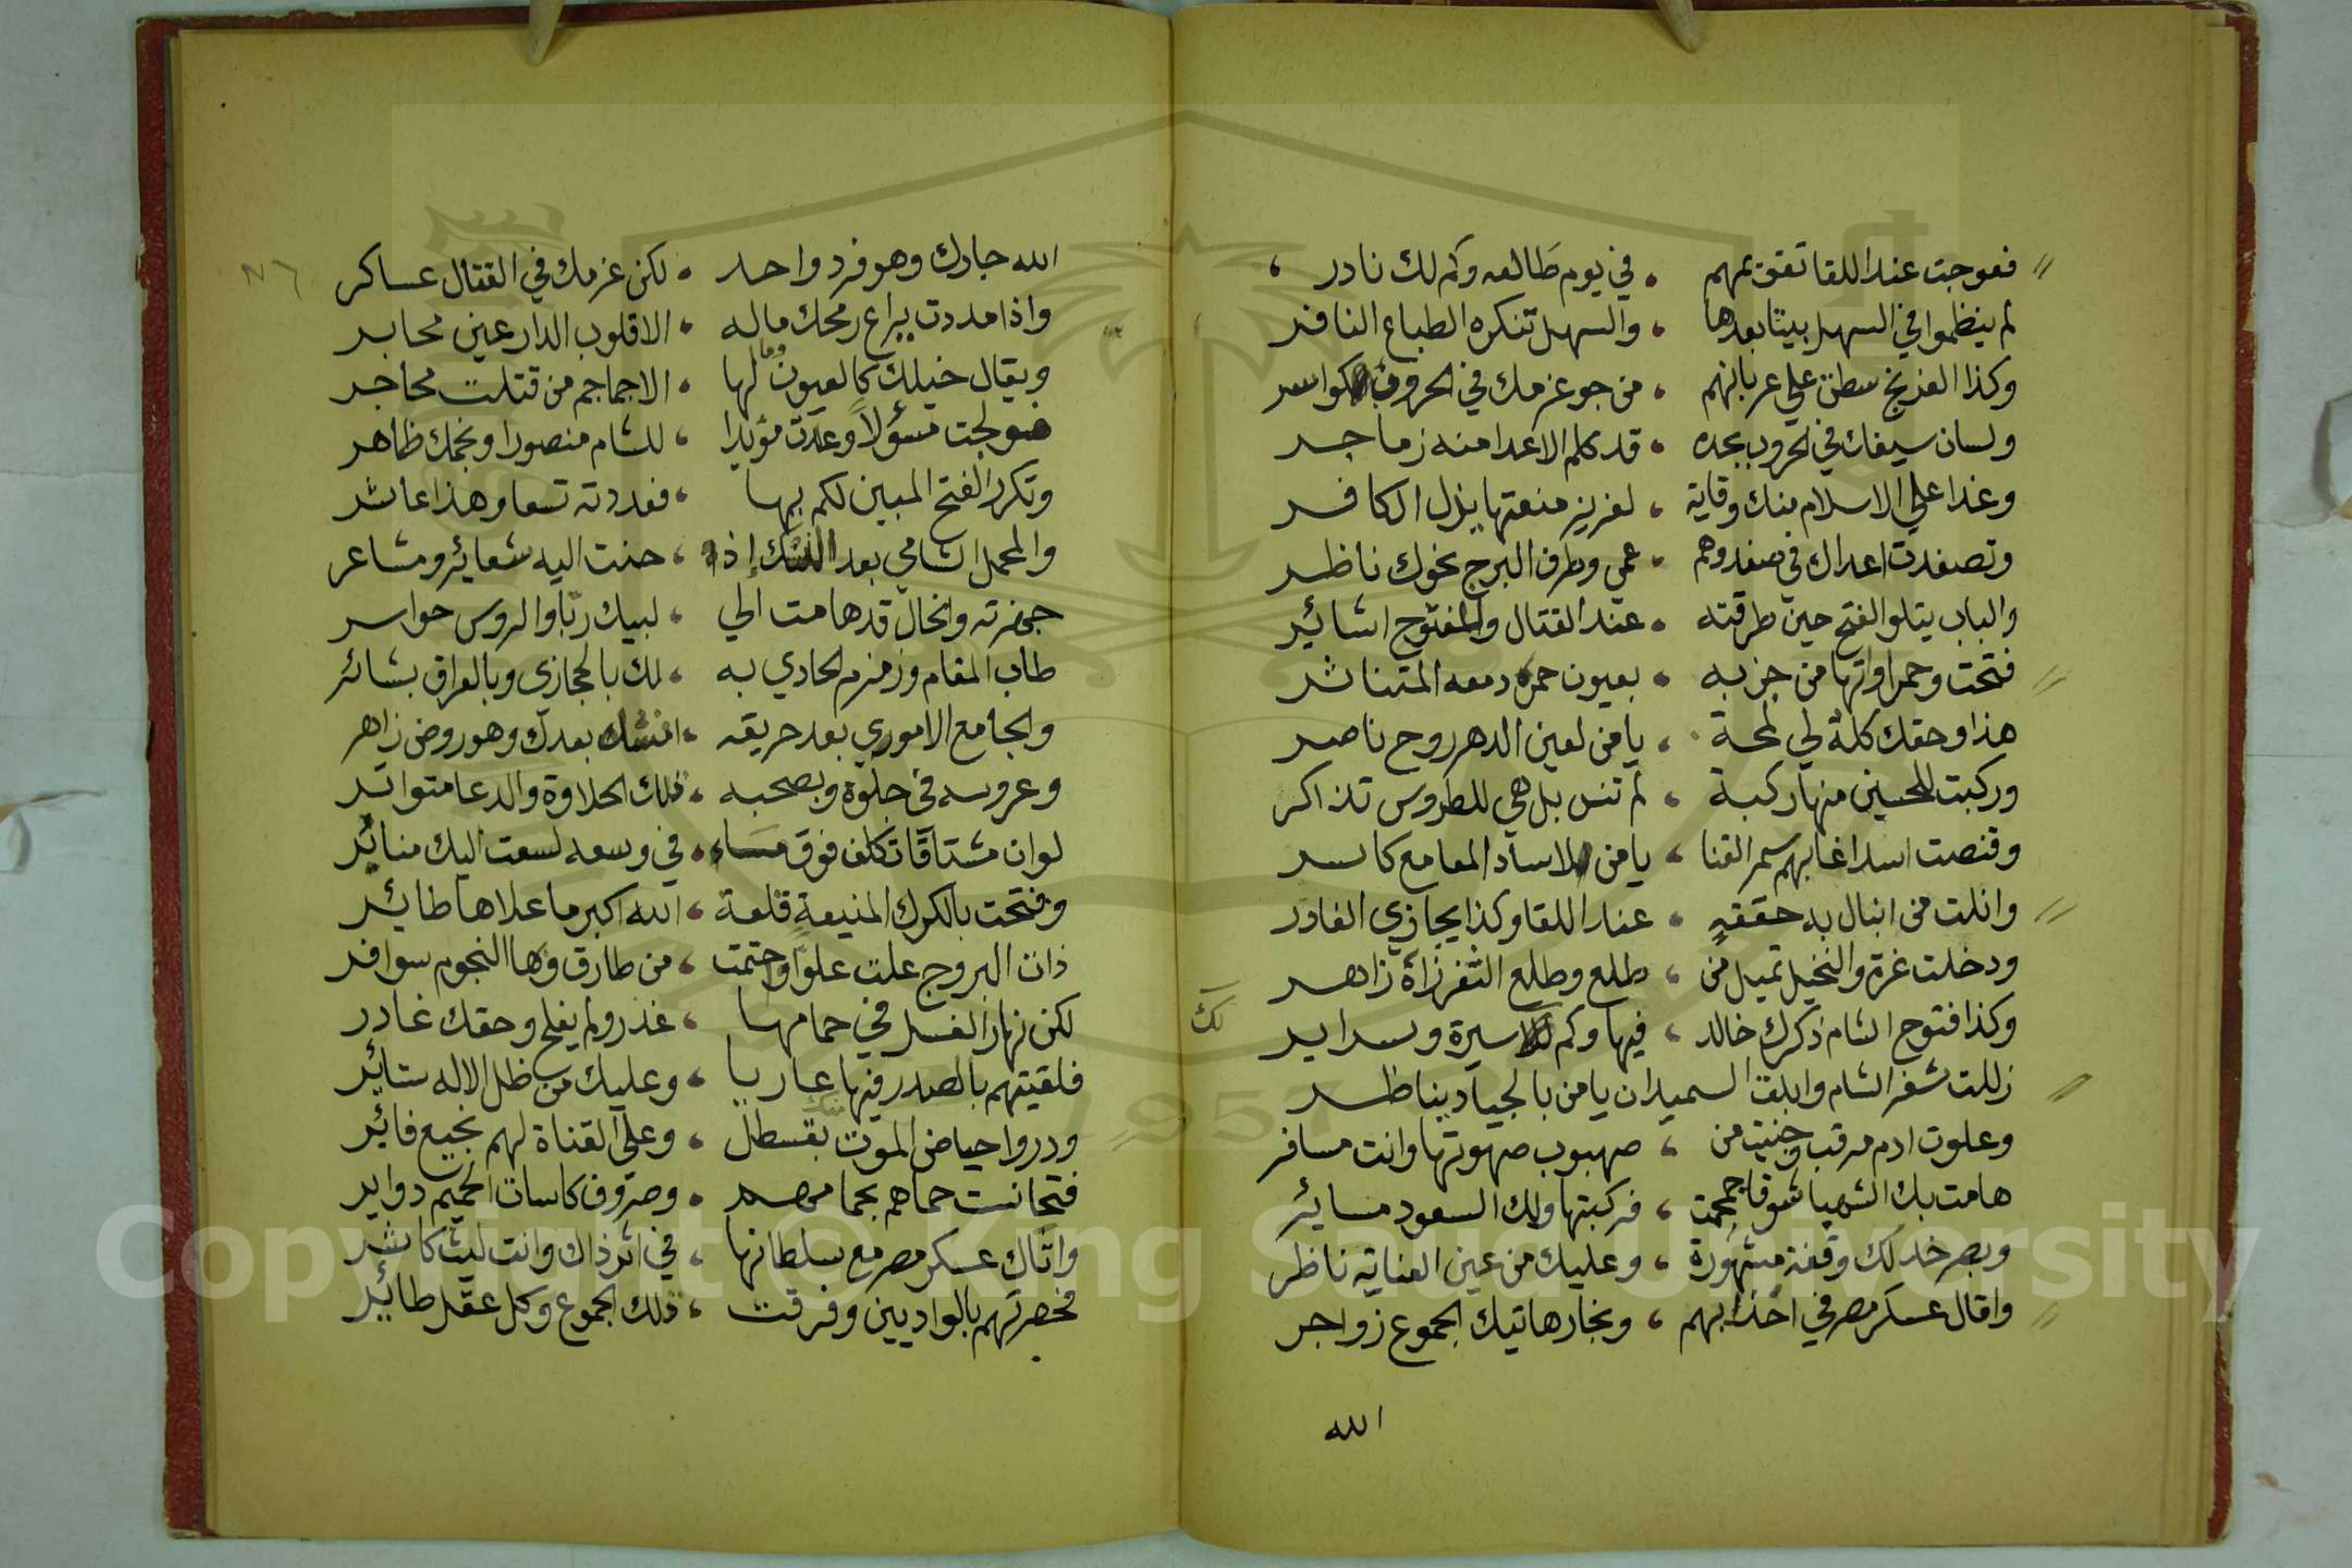 فعوجت عند اللقا تقق بمهم ، في يوم طالعه وكم لك نادر ،
لم ينظموا في السهل بيتا بعدها ، والسهل تنكره الطباع النافر
وكذا الفرنج سطت على عربانهم ، من جو عزمك في الحروف كواسر
ولسان سيفك في الحروب بحده ، قد كلم الاعدا منه زماجر
وغدا على الاسلام منك وقاية ، لعزيز منعتها يذل الكافر
وتصفدت اعداك في صفد وهم ، عمي وطرف البرج نحوك ناظر
والباب يتلو الفتح حين طرقته ، عند القتال والمفتوح اشائر
فتحت وحمراواتها من حزبه ، بعيون حمر دمعه المتناثر
هذا وحقك كلة لي لمحة ، يا من لعين الدهر روح ناصر
وركبت للحسين منها ركبة ، لم تنس بل هي للطروس تذاكر
وقنصت اسدا غابهم سمر القنا ، يا من لاساد المعامع كاسر
وانلت من ابنال به حققه ، عنار اللقا وكذا يجازي الغادر
ودخلت غزة والنخيل تميل من ، طلع وطلع الثغر زاه زاهر
وكذا فتوح الشام ذكرك خالد ، فيها وكم لك سيرة وسراير
زللت شقر الشام وابلق الـ ـميدان يا من بالجياد يناظر
وعلوت ادم مرقب وجنيت من ، صهبوب صهوتها وانت مسافر
هامت بك الشهبا شوقا جمجمت ، فركبتها ولك السعود مساير
وبصرخد لك وقفة مشهورة ، وعليك من عين العناية ناظر
واقال عسكر مصر في اخذابهم ، وبخار هاتيك الجموع زواجر
الله
لك
٧٦
الله جارك وهو فرد واحد ، لكن عزمك في القتال عساكر
واذا مددت يراع رمحك ماله ، الا قلوب الدارعين محابر
ويقال خيلك كالعيون وما لها ، الا جماجم من قتلت محاجر
فولجت مسؤلا وعدت مؤيدا ، للشام منصورا ونجمك ظاهر
وتكرر الفتح المبين لكم بها ، فعددته تسعا وهذا عاشر
والمحمل الشامي بعد النسك إذ ، حنت اليه شعائر ومشاعر
جهزته والحال قد هامت الي ، لبيك ربا والروس حواسر
طاب المقام وزمزم الحادي به ، لك بالحجازي وبالعراق بشائر
والجامع الاموري بعد حريقه ، انشاه بعدك وهو روض زاهر
وعروسه في جلوة وبصحبه ، فلك الحلاوة والدعا متواتر
لوان مشتاقا تكلف فوق مساء ، في وسعه لسعت اليك منابر
وفتحت بالكرك المنيعة قلعة ، الله اكبر ما علاها طائر
ذات البروج علت علوا واحتمت ، من طارق وها النجوم سوافر
لكن نهار الغسل في حمامها ، غذر ولم يفلح وحقك غادر
فلقيتهم بالصدر فيها عاريا ، وعليك من ظل الاله ستائر
ودروا حياض الموت بقسطل ، وعلى القناة لهم نجيع فائر
فتحانست حماهم بحمامهم ، وصروف كاسات الحميم دواير
واتاك عسكر مصر مع سلطانها ، في اثر ذاك وانت ليث كاشر
فحصرتهم بالواديين وفرقت ، تلك الجموع وكل عقل طائر